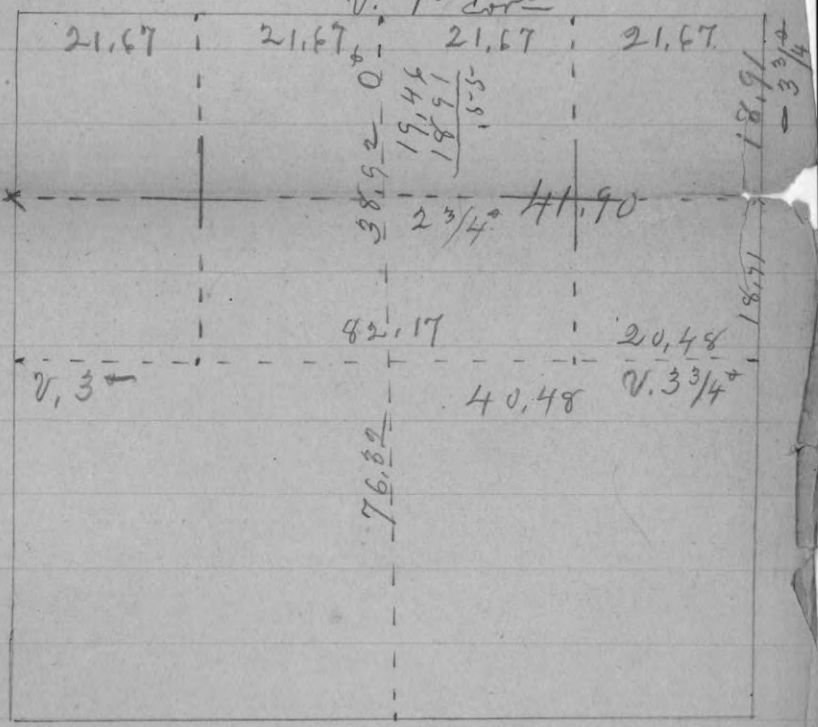 V. 1° cor=
21,67 21,67 21,67 21,67
0°
38,92
19,46
18,91
,55
18,91
3 3/4°
2 3/4°
41,90
18,91
82,17
20,48
V, 3
40,48
V. 3 3/4°
76,32